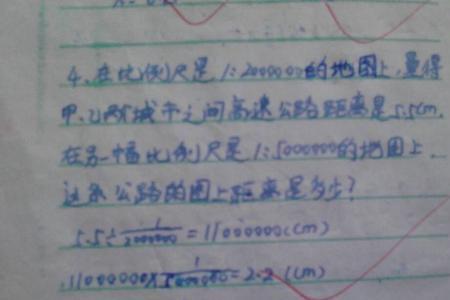 4、在比例尺是1:2000000的地图上,量得
甲、乙两城市之间高速公路距离是5.5cm,
在另一幅比例尺是1:5000000的地图上,
这条公路的图上距离是多少?
5.5÷1/2000000=11000000(cm)
11000000×1/5000000=2.2(cm)